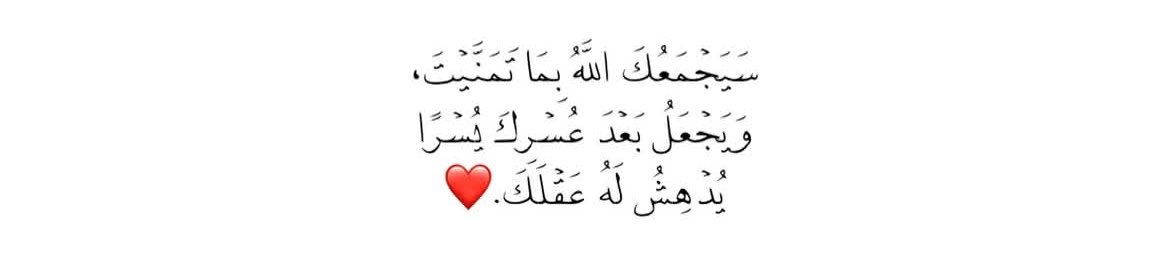 سَيَجْمَعُكَ اللَّهُ بِمَا تَمَنَّيْتَ،
وَيَجْعَلُ بَعْدَ عُسْرِكَ يُسْرًا
يُدْهِشُ لَهُ عَقْلَكَ.❤️